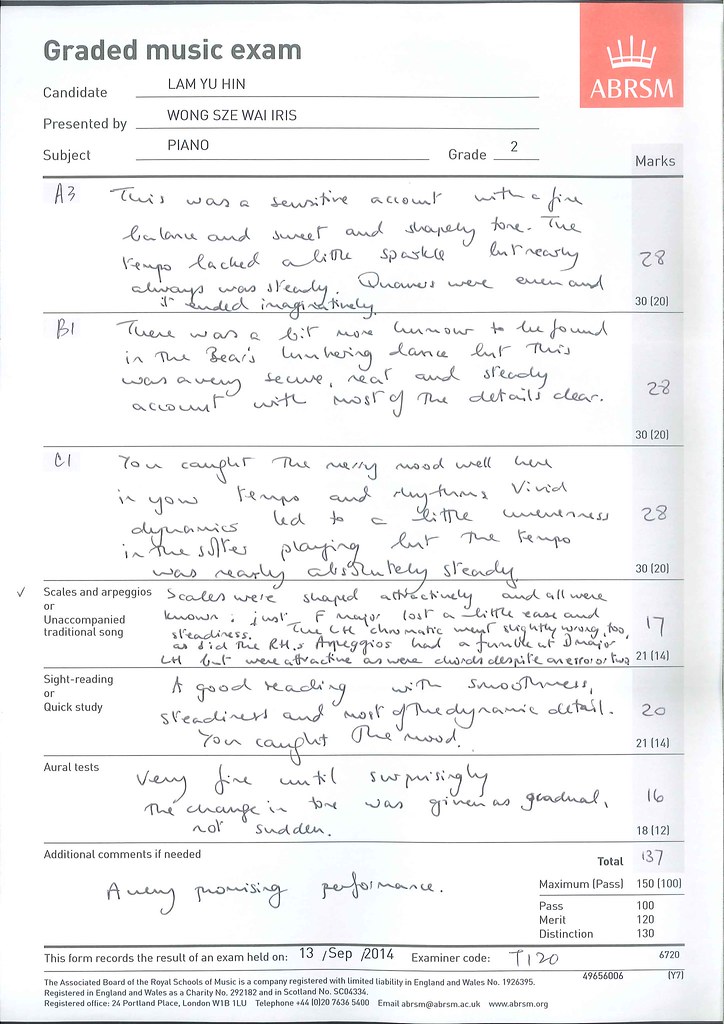 Graded music exam
ABRSM
Candidate LAM YU HIN
Presented by WONG SZE WAI IRIS
Subject PIANO Grade 2
Marks
A3 This was a sensitive account with a fine
balance and sweet and shapely tone. The
tempo lacked a little sparkle but nearly 28
always was steady. Quavers were even and
it ended imaginatively. 30 (20)
B1 There was a bit more humour to be found
in the Bear's lumbering dance but this
was a very secure, neat and steady 28
account with most of the details clear.
30 (20)
C1 You caught the merry mood well here
in your tempo and rhythms. Vivid
dynamics led to a little unevenness 28
in the softer playing but the tempo
was nearly absolutely steady 30 (20)
✓ Scales and arpeggios
or
Unaccompanied
traditional song
Scales were shaped attractively and all were
known; just F major lost a little ease and
steadiness. The LH chromatic went slightly wrong, too, 17
as did the RH.s Arpeggios had a fumble at D major
LH but were attractive as were chords despite an error or two 21 (14)
Sight-reading
or
Quick study
A good reading with smoothness,
steadiness and most of the dynamic detail. 20
You caught the mood. 21 (14)
Aural tests
Very fine until surprisingly
the change in tone was given as gradual, 16
not sudden. 18 (12)
Additional comments if needed
A very promising performance.
Total 137
Maximum (Pass) 150 (100)
Pass 100
Merit 120
Distinction 130
This form records the result of an exam held on: 13 /Sep /2014 Examiner code: T120 6720
49656006 (Y7)
The Associated Board of the Royal Schools of Music is a company registered with limited liability in England and Wales No. 1926395.
Registered in England and Wales as a Charity No. 292182 and in Scotland No. SC04334.
Registered office: 24 Portland Place, London W1B 1LU Telephone +44 (0)20 7636 5400 Email abrsm@abrsm.ac.uk www.abrsm.org